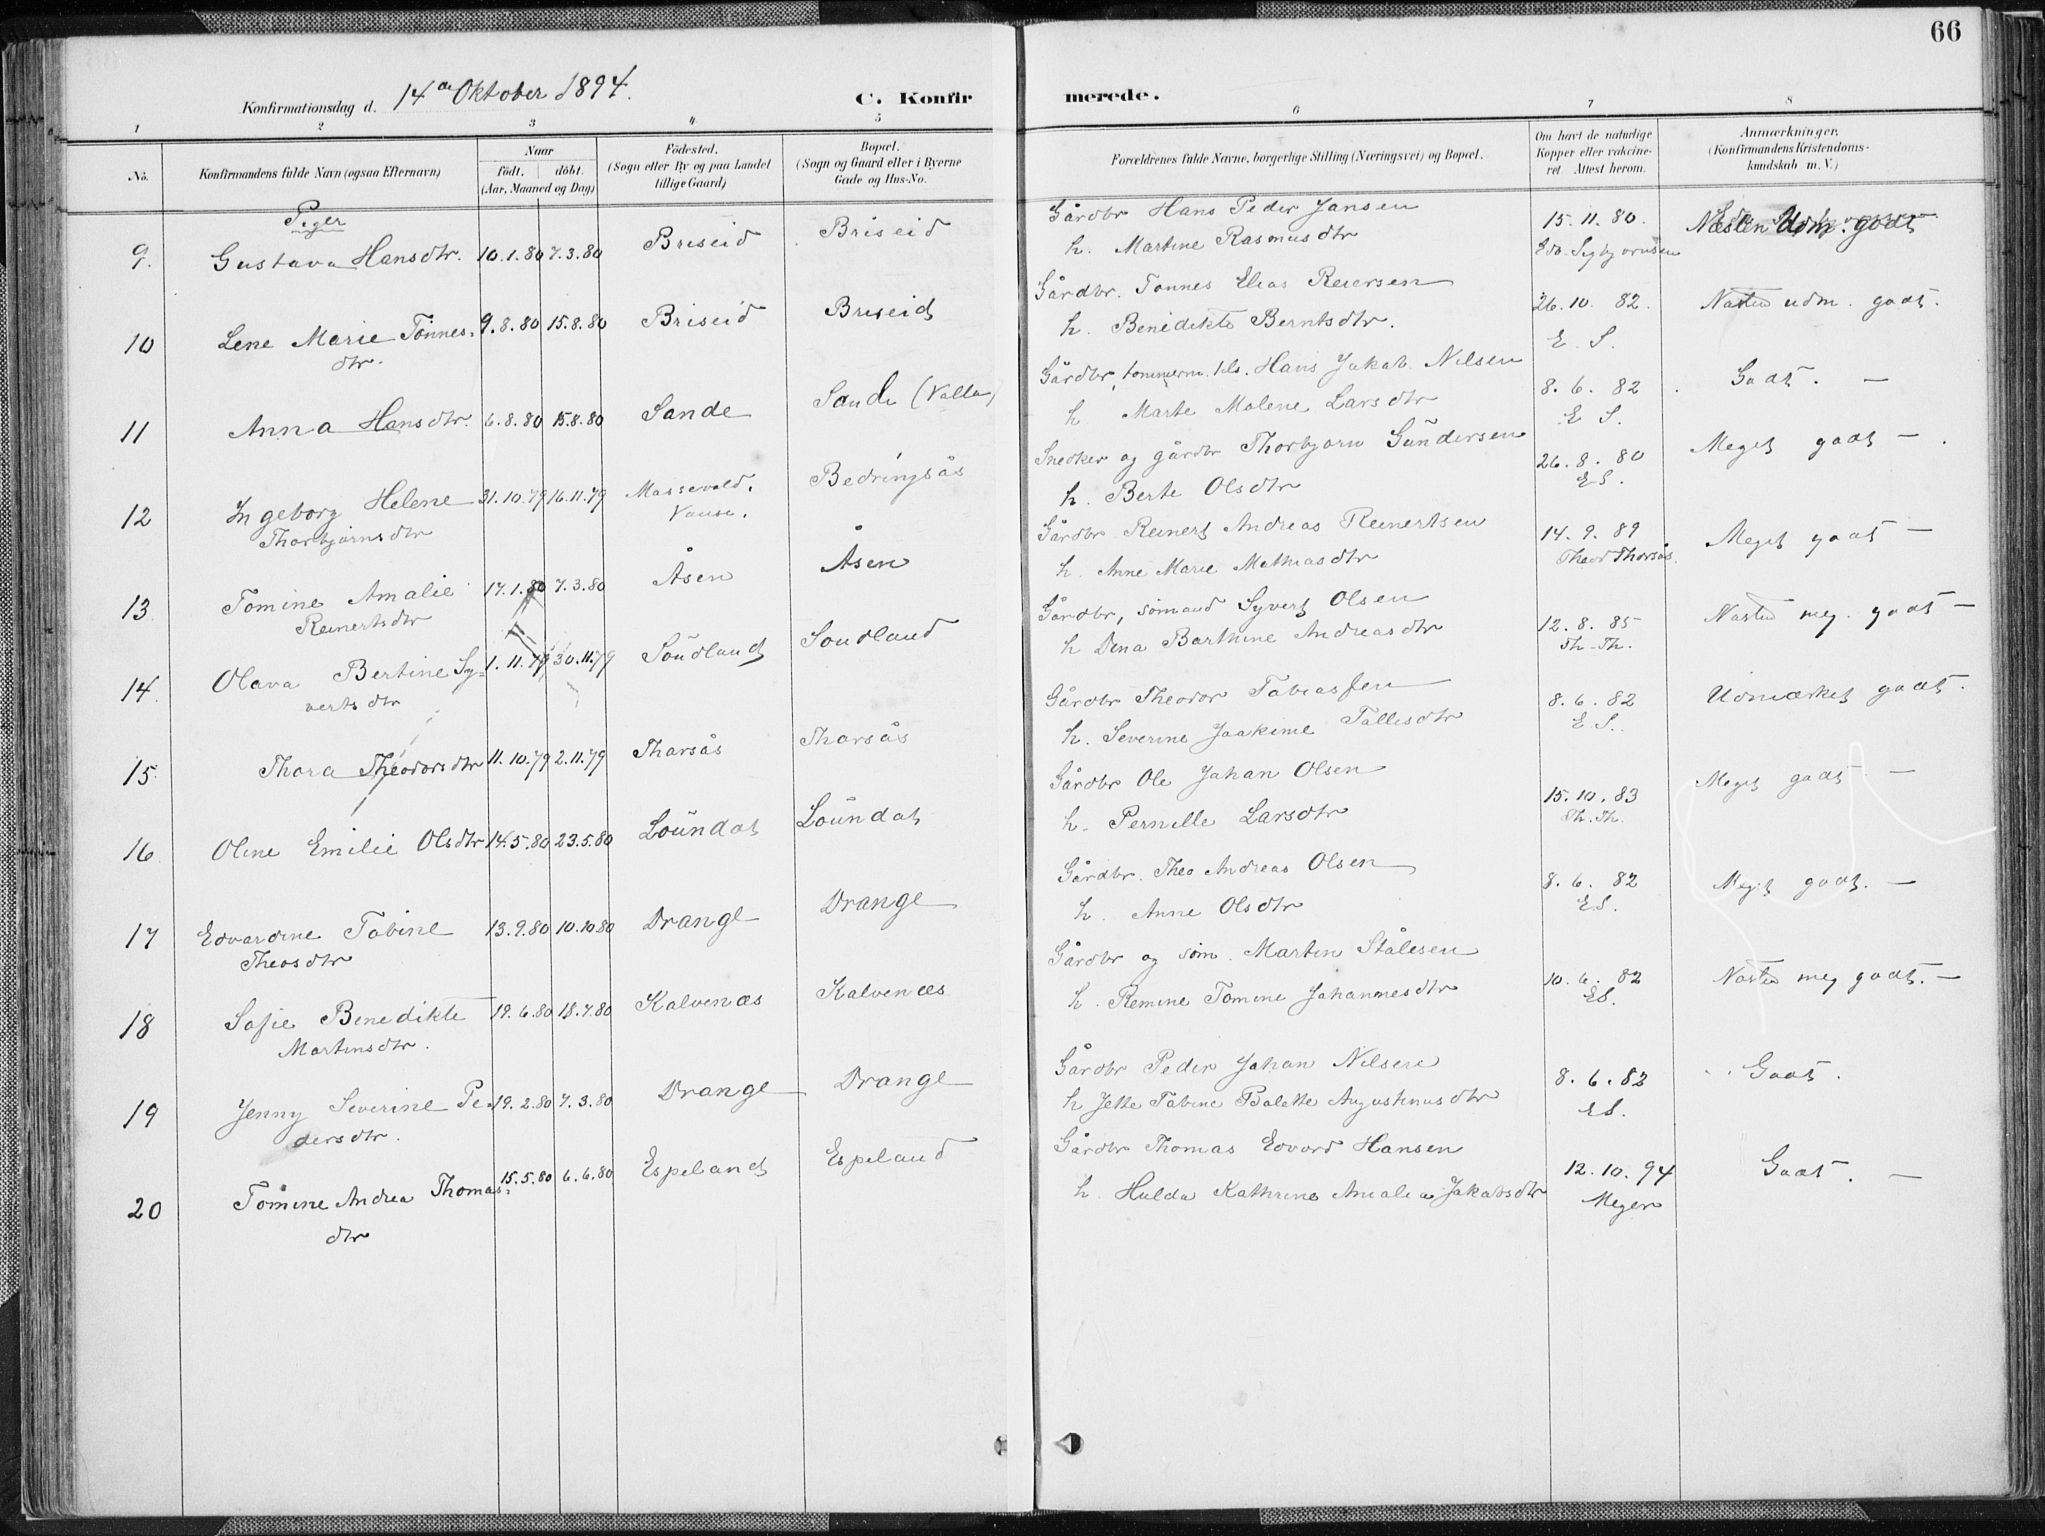 66
Konfirmationsdag d. 14de Oktober 1894.
C. Konfirmerede.
1 2 3 4 5 6 7 8
No.
Konfirmandens fulde Navn (ogsaa Efternavn)
Naar
födt. döbt.
(Aar, Maaned og Dag)
Födested.
(Sogn eller By og paa Landet
tillige Gaard)
Bopæl.
(Sogn og Gaard eller i Byerne
Gade og Hus-No.
Forældrenes fulde Navne, borgerlige Stilling (Næringsvei) og Bopæl.
Om havt de naturlige
Kopper eller vakcine-
ret. Attest herom.
Anmærkninger.
(Konfirmandens Kristendoms-
kundskab m. V.)
Piger
9. Gustava Hansdtr. 10.1.80 7.3.80 Briseid Briseid
Gårdbr Hans Peder Jansen 15.11.80. Næsten Udm. godt
h. Martine Rasmusdtr Edv. Sigbjørnsen
10 Lene Marie Tönnes- 9.8.80 15.8.80 Briseid Briseid
dtr.
Gårdbr. Tønnes Elias Reiersen 26.10.82. Næsten udm. godt.
h. Benedikte Berntsdtr. E. S.
11 Anna Hansdtr. 6.8.80 15.8.80 Sande Sande (Valle)
Gårdbr, tømmerm. tils. Hans Jakob Nilsen 8.6.82 Godt. —
h Marte Malene Larsdtr E S.
12 Ingeborg Helene 31.10.79 16.11.79 Massevold. Bedringsås
Thorbjørnsdtr Vanse.
Snedker og gårdbr Thorbjørn Gündersen 26.8.80 Meget godt —.
h. Berte Olsdtr E S.
13 Tomine Amalie 17.1.80 7.3.80 Åsen Åsen
Reinertsdtr
Gårdbr. Reinert Andreas Reinertsen 14.9.89 Meget godt —
h. Anne Marie Mathiasdtr Theod Thorsås.
14. Olava Bertine Sy- 1.11.79 30.11.79 Söudland Soudland
vertsdtr
Gårdbr, sømand Syvert Olsen 12.8.85 Næsten meg. godt —
h Dina Barthine Andreasdtr Th. Th.
15. Thora Theodorsdtr 11.10.79 2.11.79 Thorsås Thorsås
Gårdbr Theodor Tobiassen 8.6.82 Udmærket godt.
h. Severine Joakime Tallesdtr E S.
16. Oline Emilie Olsdtr 14.5.80 23.5.80 Loündal Loündal
Gårdbr Ole Johan Olsen 15.10.83 Meget godt —
h. Pernille Larsdtr Th. Th.
17 Edvardine Tobine 13.9.80 10.10.80 Drange Drange
Theosdtr
Gårdbr. Theo Andreas Olsen 8.6.82 Meget godt. —
h. Anne Olsdtr E S.
18 Sofie Benedikte 19.6.80 18.7.80 Kalvenæs Kalvenæs
Martinsdtr.
Gårdbr og søm. Martin Stålesen 10.6.82 Næsten meg godt. —
h. Remine Tomine Johannesdtr E S.
19 Jenny Severine Pe- 19.2.80 7.3.80 Drange Drange
dersdtr.
Gårdbr Peder Johan Nilsen 8.6.82 Godt.
h Jette Tobine Balette Augustinusdtr E S.
20 Tomine Andrea Thomas- 15.5.80 6.6.80 Espeland Espeland
dtr
Gårdbr Thomas Edvard Hansen 12.10.94 Godt. —
h. Hulda Kathrine Amalia Jakobsdtr Meyer